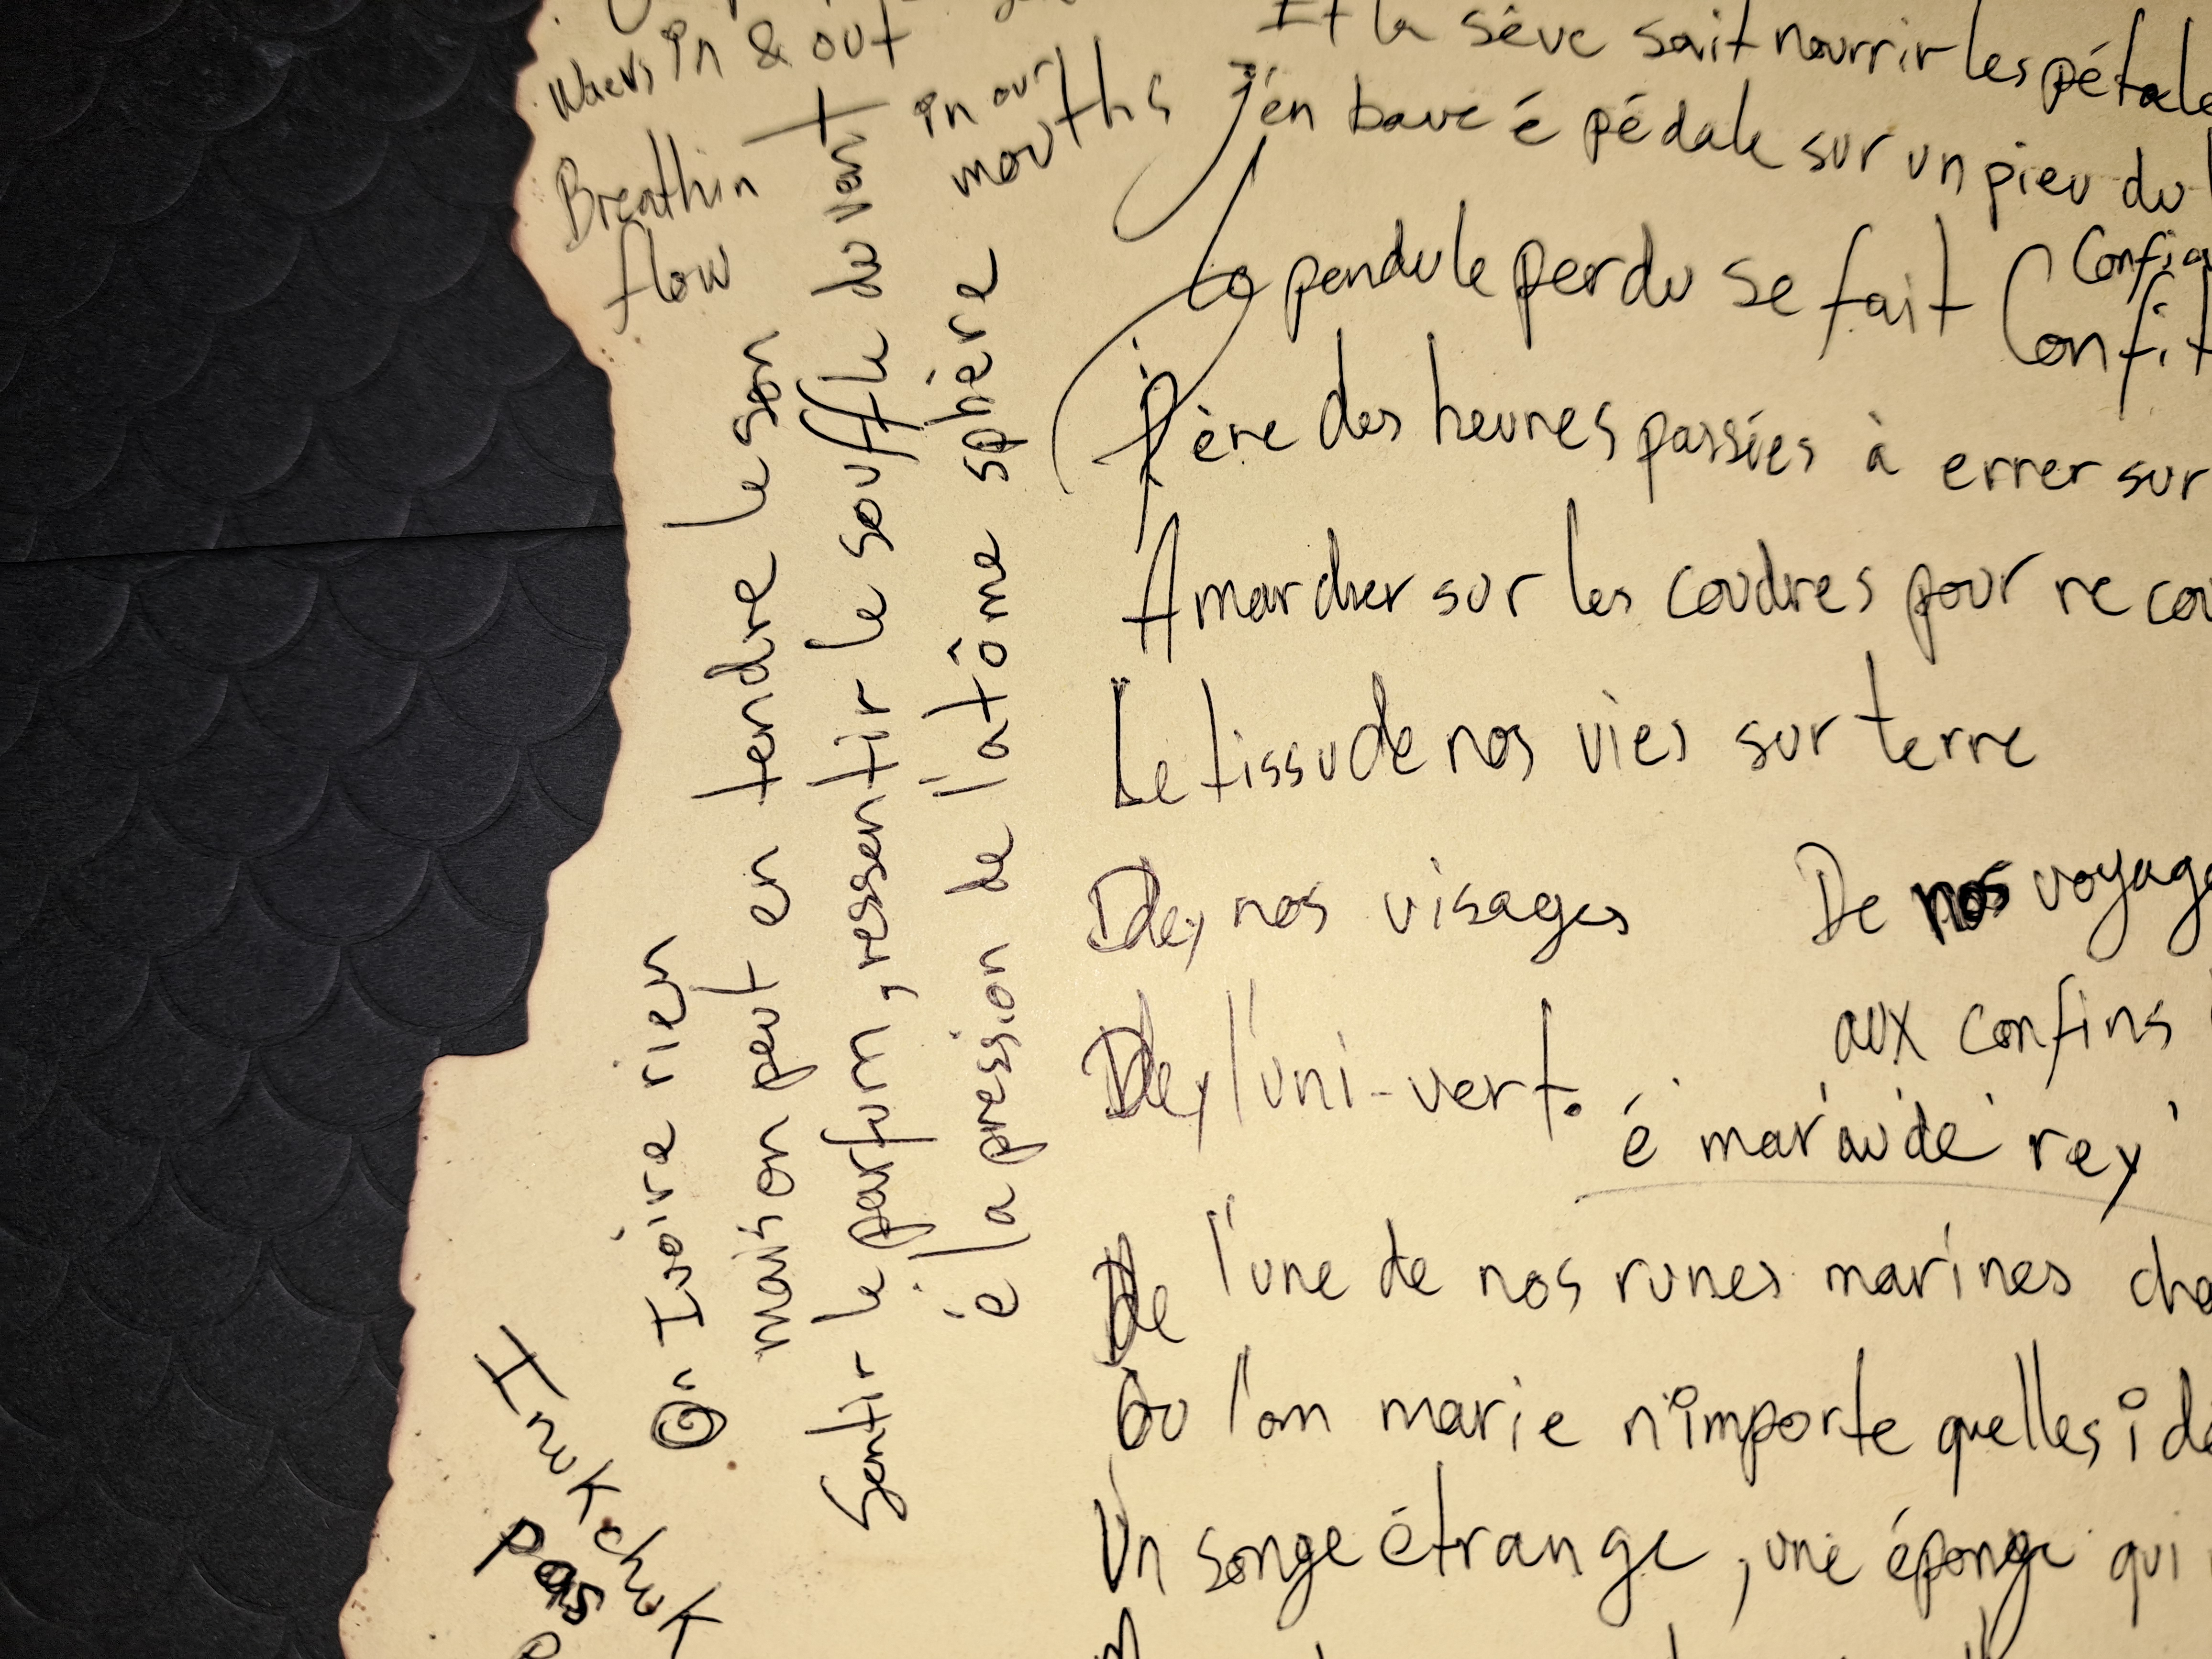 in & out
Breathin
flow
in our
mouths
Et la sève sait nourrir les pétale
J'en bave é pédale sur un pieu du
La pendule perdu se fait
Confi
Confit
Père des heures passées à errer sur
A marcher sur les coudres pour re cou
Le tissu de nos vies sur terre
Dey nos visages
De nos voyage
Dey l'uni-vert.
aux confins
é mar'au'de' rey'
De l'une de nos runes marines cha
Où l'on marie n'importe quelles idé
Un songe étrange, une éponge qui
On Ivoire rien
mais on peut en tendre le son
Sentir le parfum, ressentir le souffle du vent
é la pression de l'atôme sphère
Inukchuk
Pas